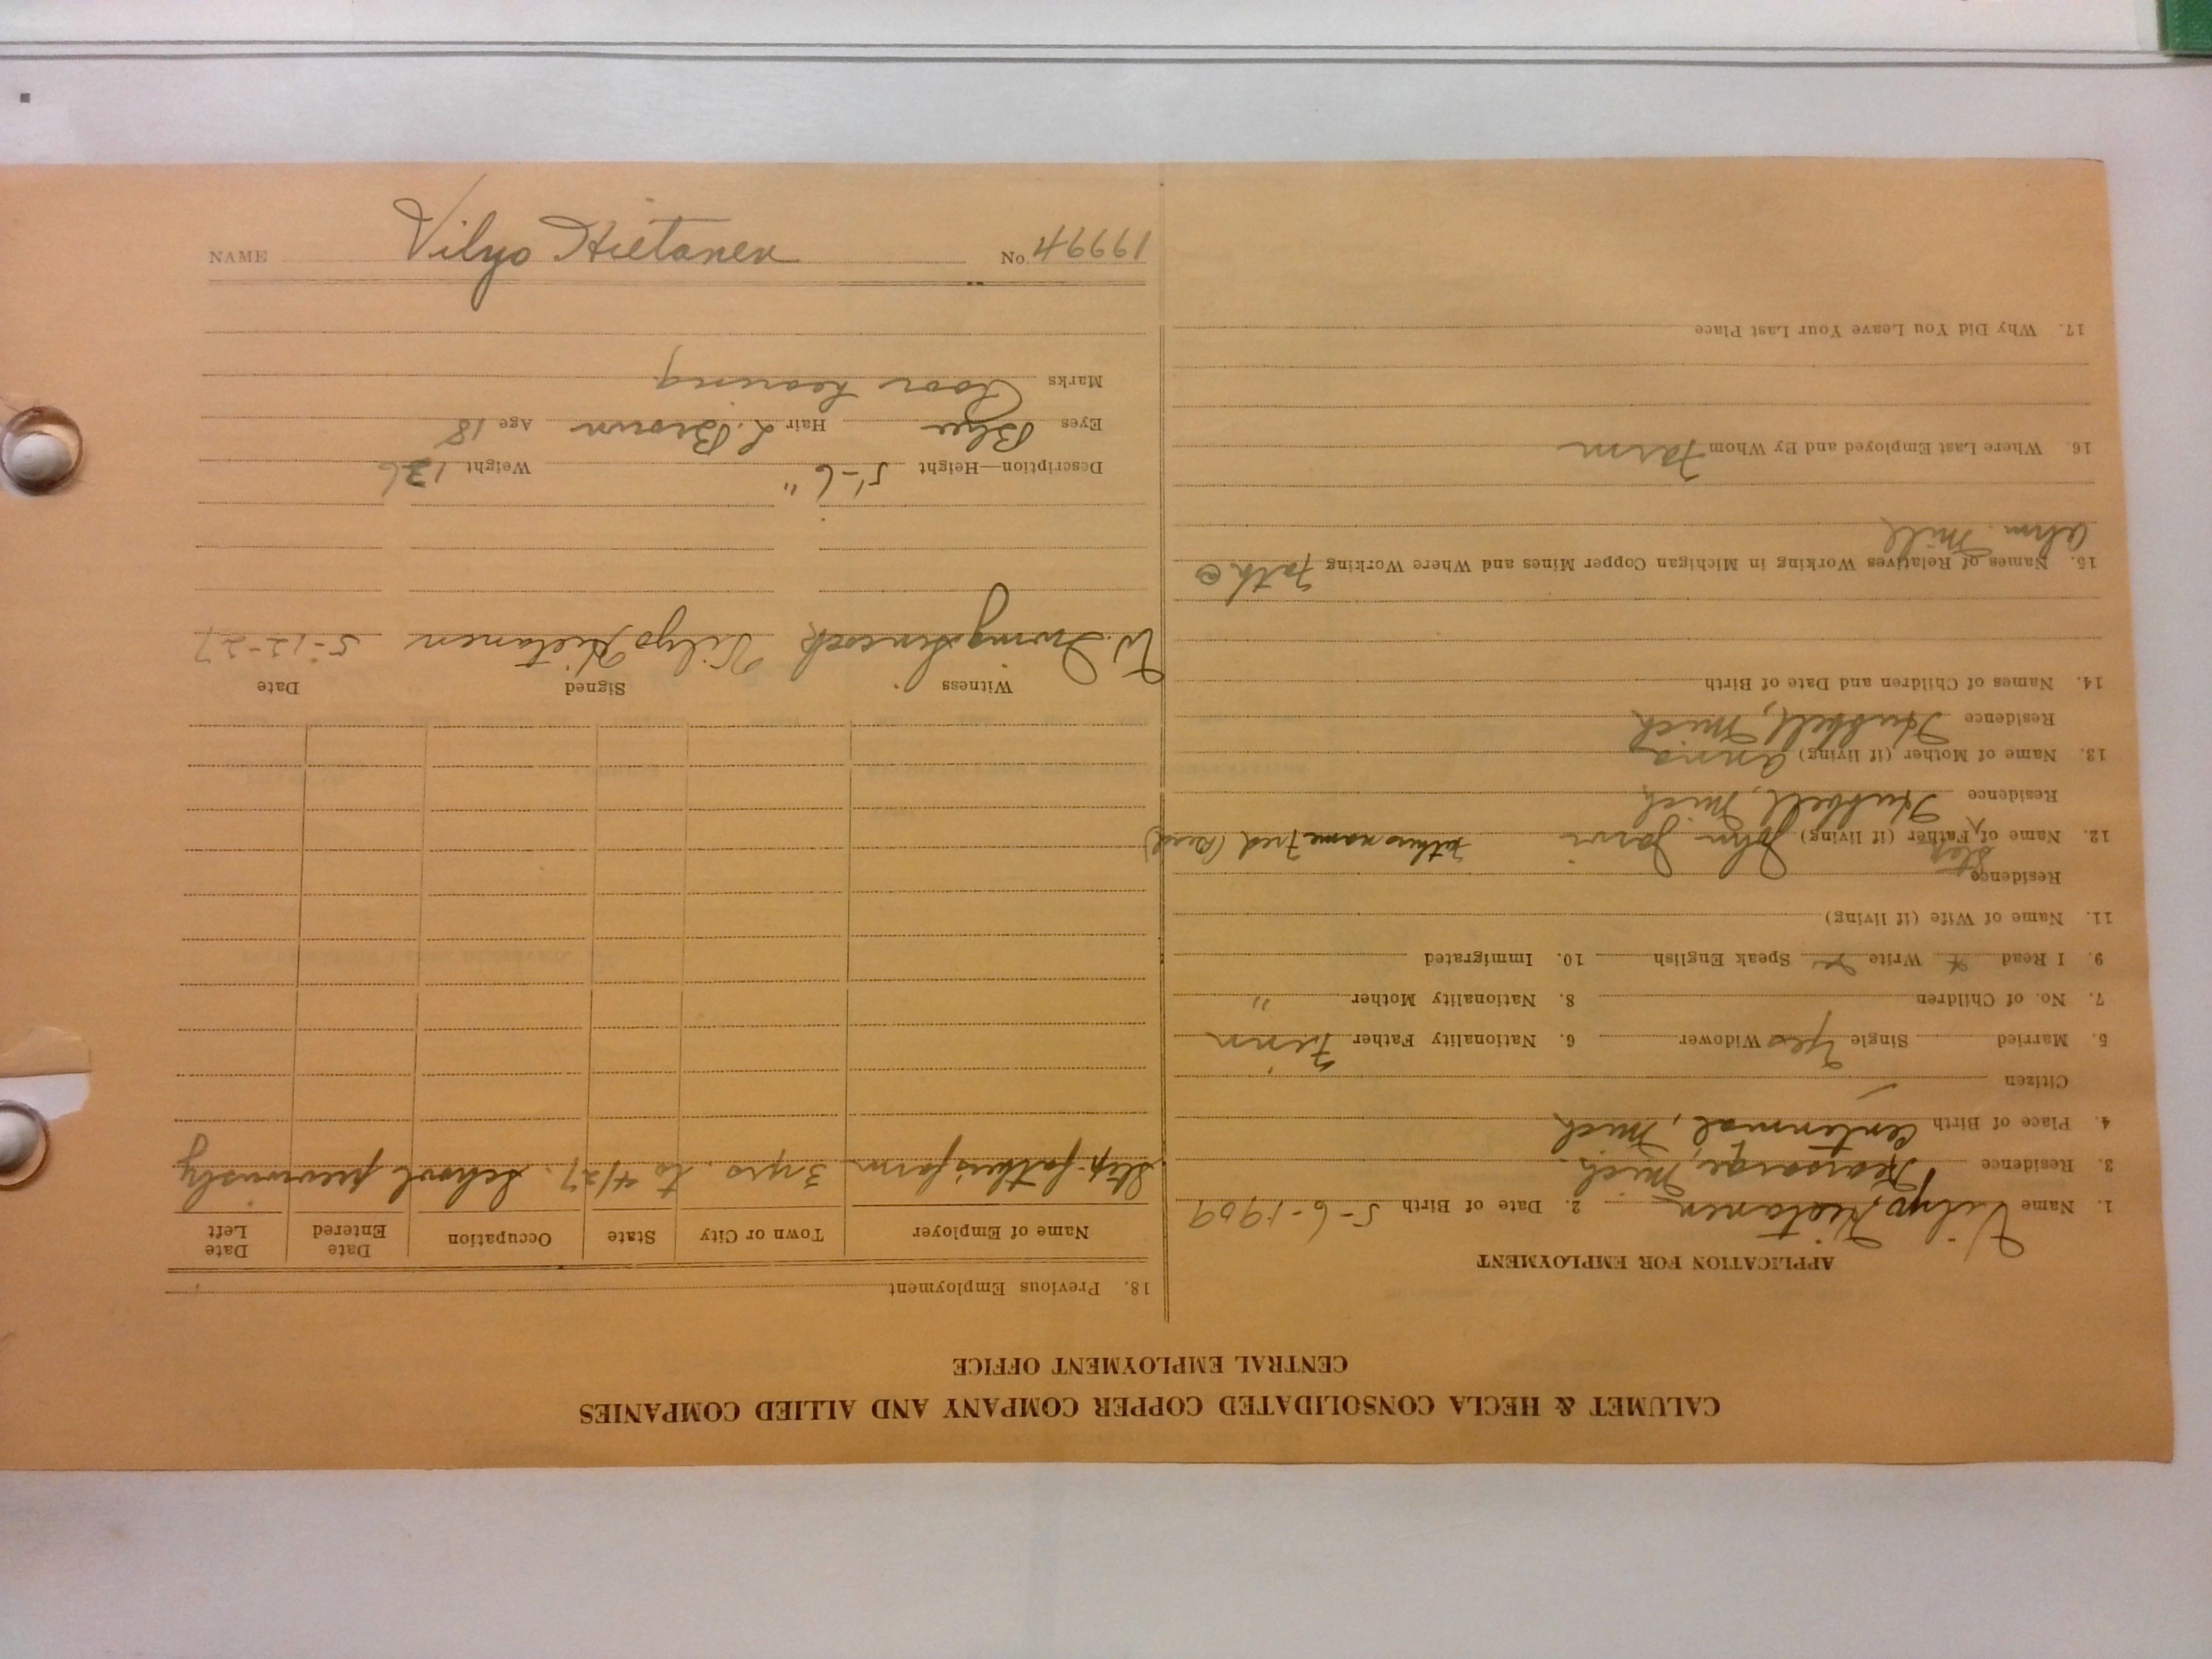 CALUMET & HECLA CONSOLIDATED COPPER COMPANY AND ALLIED COMPANIES
CENTRAL EMPLOYMENT OFFICE
APPLICATION FOR EMPLOYMENT
1. Name Vilyo Hietanen 2. Date of Birth 5-6-1909
3. Residence Kearsarge, Mich.
4. Place of Birth Centennial, Mich
Citizen
5. Married Single Yes Widower 6. Nationality Father Finn
7. No. of Children 8. Nationality Mother "
9. I Read x Write x Speak English 10. Immigrated
11. Name of Wife (if living)
Residence
Step
12. Name of Father (if living) John Jarvi Fathers name Fred (Dead)
Residence Hubbell, Mich
13. Name of Mother (if living) Anna
Residence Hubbell, Mich
14. Names of Children and Date of Birth
15. Names of Relatives Working in Michigan Copper Mines and Where Working Fath @
Ahm. Mill
16. Where Last Employed and By Whom Farm
17. Why Did You Leave Your Last Place
18. Previous Employment
Name of Employer Town or City State Occupation Date Entered Date Left
Step-father's farm 3 yrs. to 4/27. School previously
Witness Signed Date
W. Vilyo Hietanen 5-12-27
Description—Height 5'-6" Weight 136
Eyes Blue Hair L. Brown Age 18
Marks Poor hearing
No. 19994
NAME Vilyo Hietanen